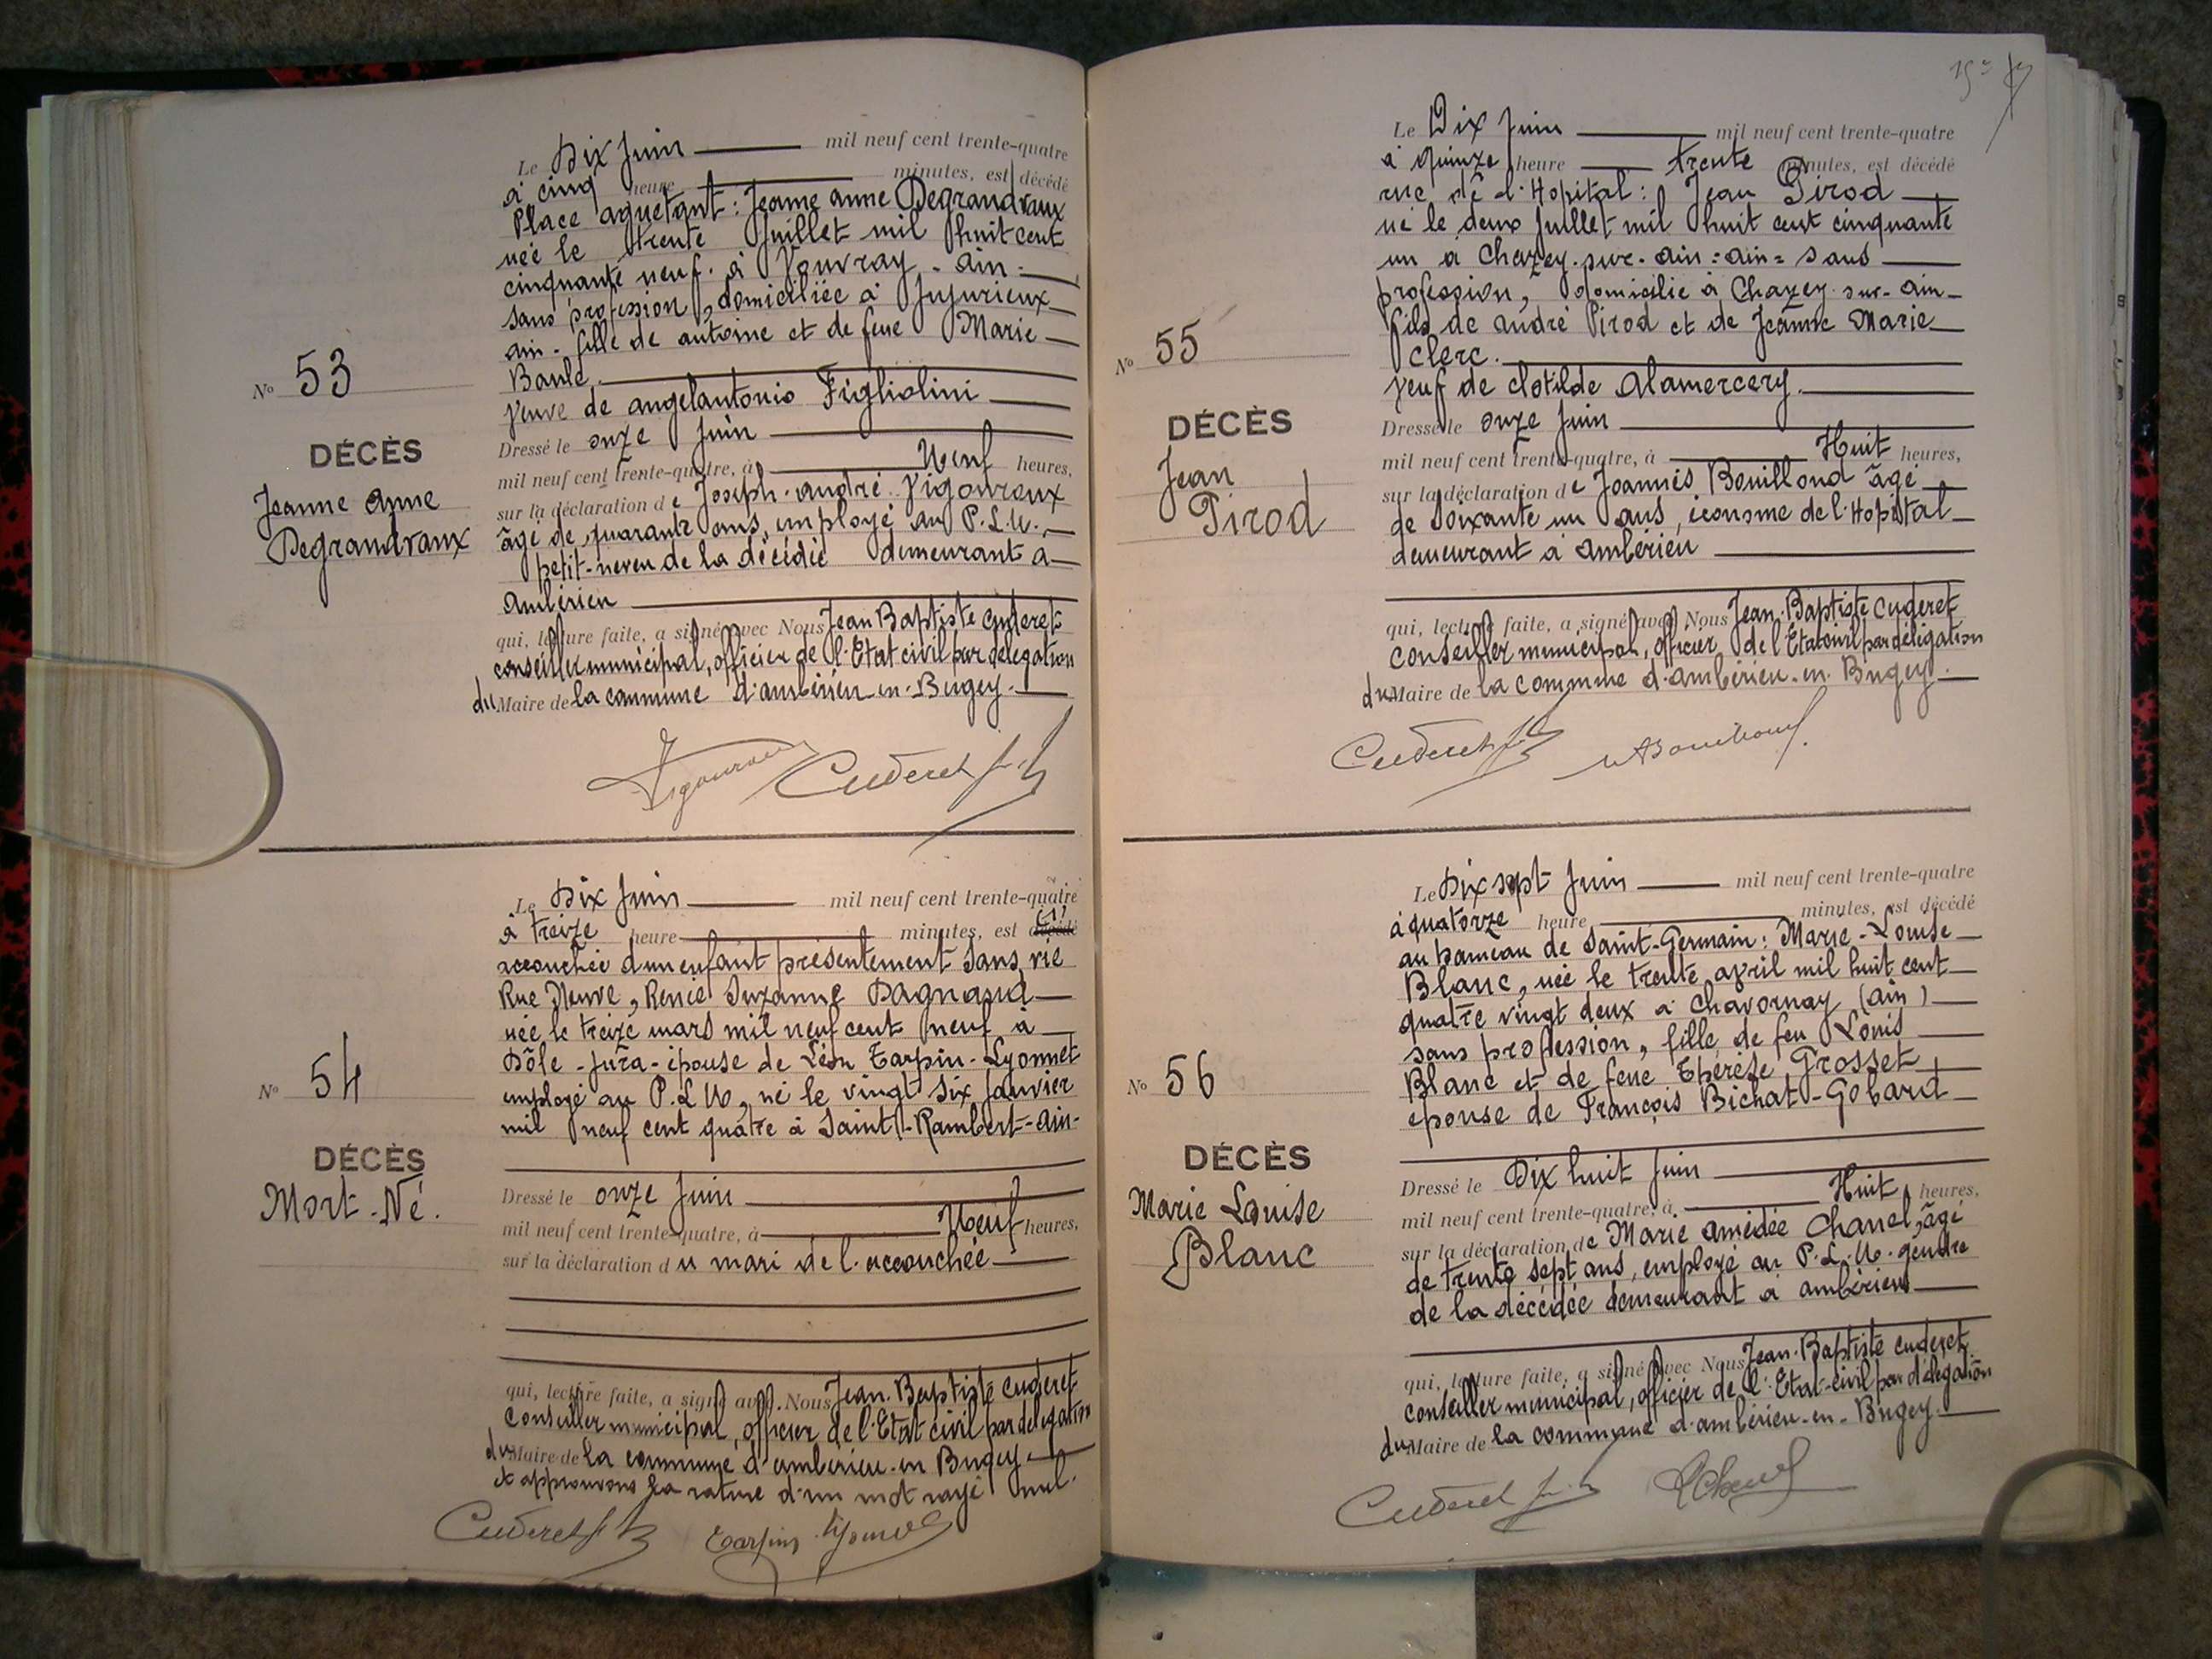 Le Dix Juin mil neuf cent trente-quatre
à cinq heure minutes, est décédé
Place aguetant : Jeanne anne Degrandvaux
née le trente Juillet mil huit cent
cinquante neuf. à Vouvray - ain -
sans profession, domiciliée à Jujurieux
ain - fille de antoine et de feue Marie
veuve de angelantonio Figliolini
Dressé le onze Juin
mil neuf cent trente-quatre, à Neuf heures,
sur la déclaration de Joseph-andré Vigouroux
âgé de quarante ans, employé au P.L.M.
petit-neveu de la décédée demeurant à
ambérieu
qui, lecture faite, a signé avec Nous Jean Baptiste Cuderet
conseiller municipal, officier de l'Etat civil par délégation
du Maire de la commune d'ambérieu-en-Bugey.
No 53
DÉCÈS
Jeanne anne
Degrandvaux
Cuderet
Le Dix Juin mil neuf cent trente-quatre
à treize heure minutes, est décédé (1)
accouchée d'un enfant présentement sans vie
Rue Neuve, Renée Suzanne Dagnaud
née le treize mars mil neuf cent neuf à
Dôle - Jura - épouse de Léon Tarpin-Lyonnet
employé au P.L.M, né le vingt six Janvier
mil neuf cent quatre à Saint-Rambert-ain-
Dressé le onze Juin
mil neuf cent trente-quatre, à Neuf heures,
sur la déclaration du mari de l'accouchée
qui, lecture faite, a signé avec Nous Jean-Baptiste Cuderet
Conseiller municipal, officier de l'Etat civil par délégation
du Maire de la commune d'ambérieu-en Bugey.
et approuvons la rature d'un mot rayé nul.
No 54
DÉCÈS
Mort-Né.
Cuderet Tarpin Lyonnet
Le Dix Juin mil neuf cent trente-quatre
à quinze heure trente minutes, est décédé
rue de l'Hopital : Jean Pirod
né le deux Juillet mil huit cent cinquante
un à Chazey-sur-ain = ain = sans
profession, domicilié à Chazey-sur-ain-
fils de andré Pirod et de Jeanne Marie
Clerc.
veuf de Clotilde Alamercery.
Dressé le onze Juin
mil neuf cent trente-quatre, à Huit heures,
sur la déclaration de Joannès Bouillond âgé
de soixante un ans, économe de l'Hopital
demeurant à ambérieu
qui, lecture faite, a signé avec Nous Jean-Baptiste Cuderet
Conseiller municipal, officier de l'Etat civil par délégation
du Maire de la commune d'ambérieu-en Bugey.
No 55
DÉCÈS
Jean
Pirod
Cuderet
Le Dix sept Juin mil neuf cent trente-quatre
à quatorze heure minutes, est décédé
au hameau de Saint-Germain : Marie-Louise
Blanc, née le trente avril mil huit cent
quatre vingt deux à Chavornay (ain)
sans profession, fille de feu Louis
Blanc et de feue Thérèse Grosset
épouse de François Bichat-Gobard
Dressé le Dix huit Juin
mil neuf cent trente-quatre, à Huit heures,
sur la déclaration de Marie amédée Chanel, âgé
de trente sept ans, employé au P.L.M. gendre
de la décédée demeurant à ambérieu
qui, lecture faite, a signé avec Nous Jean-Baptiste Cuderet
conseiller municipal, officier de l'Etat-civil par délégation
du Maire de la commune d'ambérieu-en-Bugey.
No 56
DÉCÈS
Marie Louise
Blanc
Cuderet